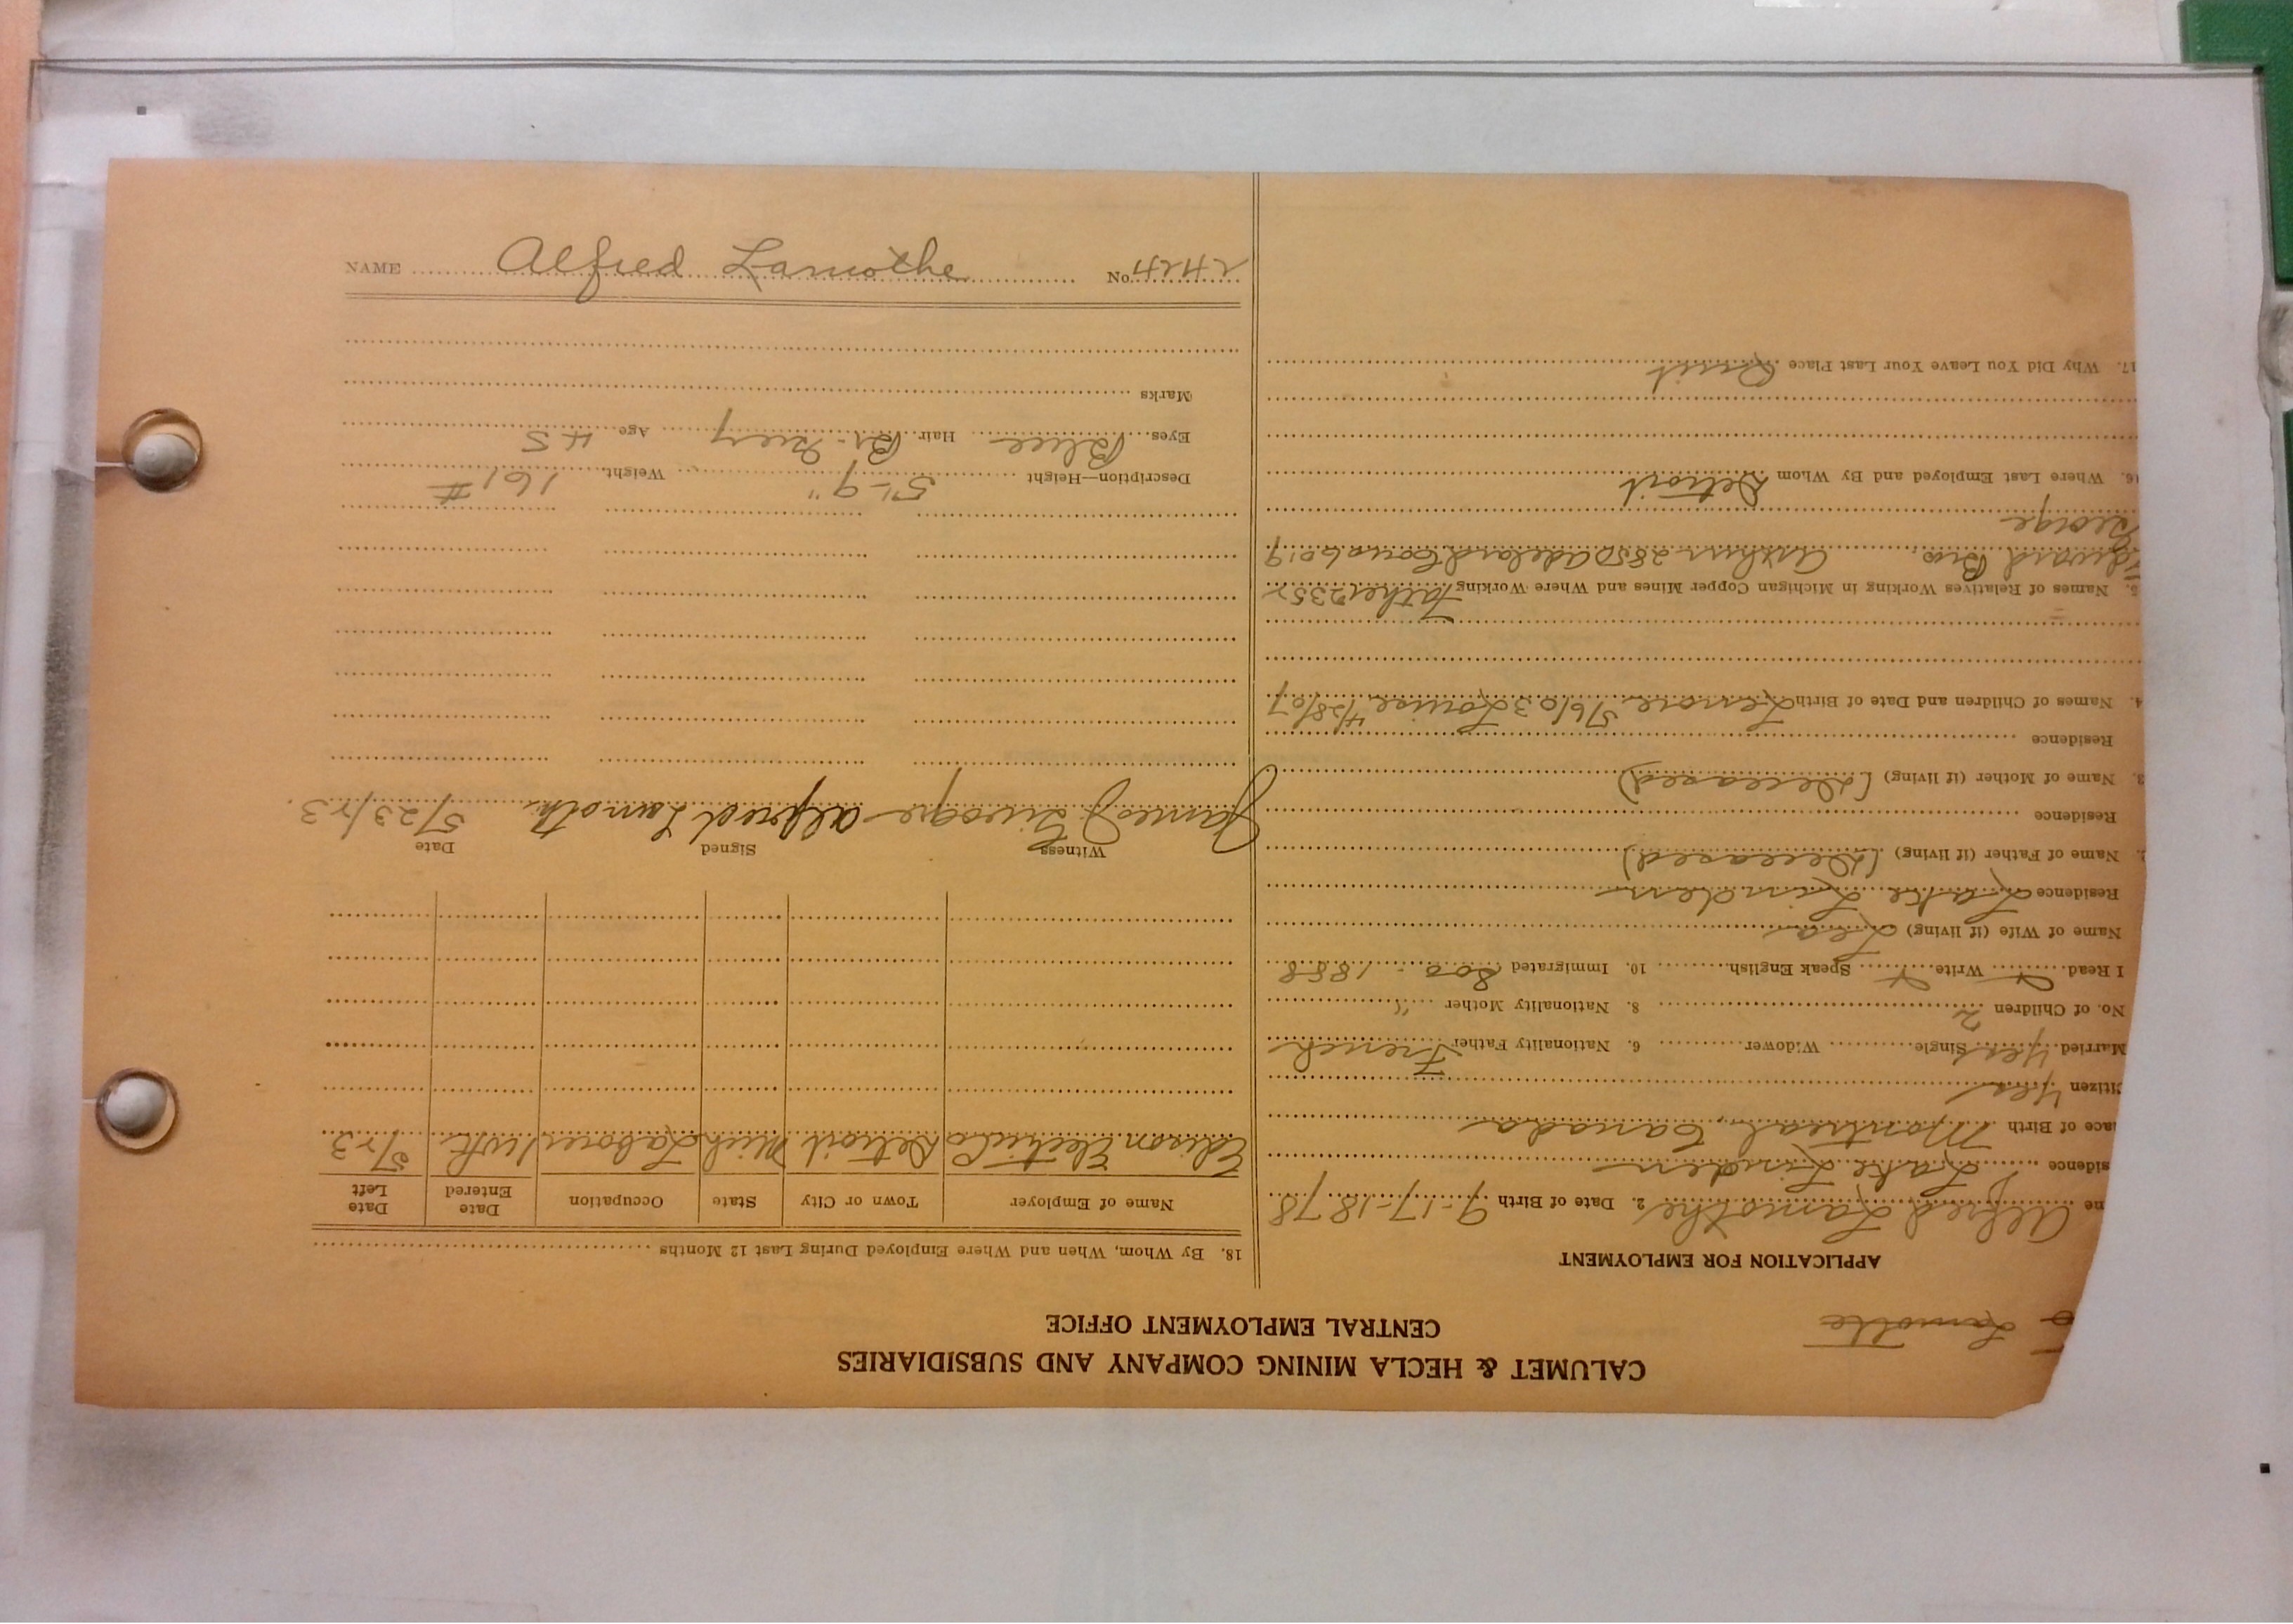 CALUMET & HECLA MINING COMPANY AND SUBSIDIARIES
CENTRAL EMPLOYMENT OFFICE
Lamotte
APPLICATION FOR EMPLOYMENT
ne Alfred Lamothe 2. Date of Birth 9-17-1878
sidence Lake Linden
lace of Birth Montreal, Canada
Citizen Yes
Married Yes Single Widower 6. Nationality Father French
No. of Children 2 8. Nationality Mother "
I Read Write Speak English 10. Immigrated Soo - 1888
Name of Wife (if living) Lea
Residence Lake Linden
Name of Father (if living) (Deceased)
Residence
3. Name of Mother (if living) (Deceased)
Residence
4. Names of Children and Date of Birth Lenore 5/6/03 Louise 4/28/07
5. Names of Relatives Working in Michigan Copper Mines and Where Working Father 2352
Edward Bro. Arthur 2850 Adelard Cous 6019
George
16. Where Last Employed and By Whom Detroit
17. Why Did You Leave Your Last Place Quit
18. By Whom, When and Where Employed During Last 12 Months
Name of Employer Town or City State Occupation Date Entered Date Left
Edison Electric Co Detroit Mich Laborer 5/23
Witness Signed Date
James J. Alfred Lamothe 5/23/23.
Description—Height 5'-9" Weight 161 #
Eyes Blue Hair Br-Grey Age 45
Marks
NAME Alfred Lamothe No.